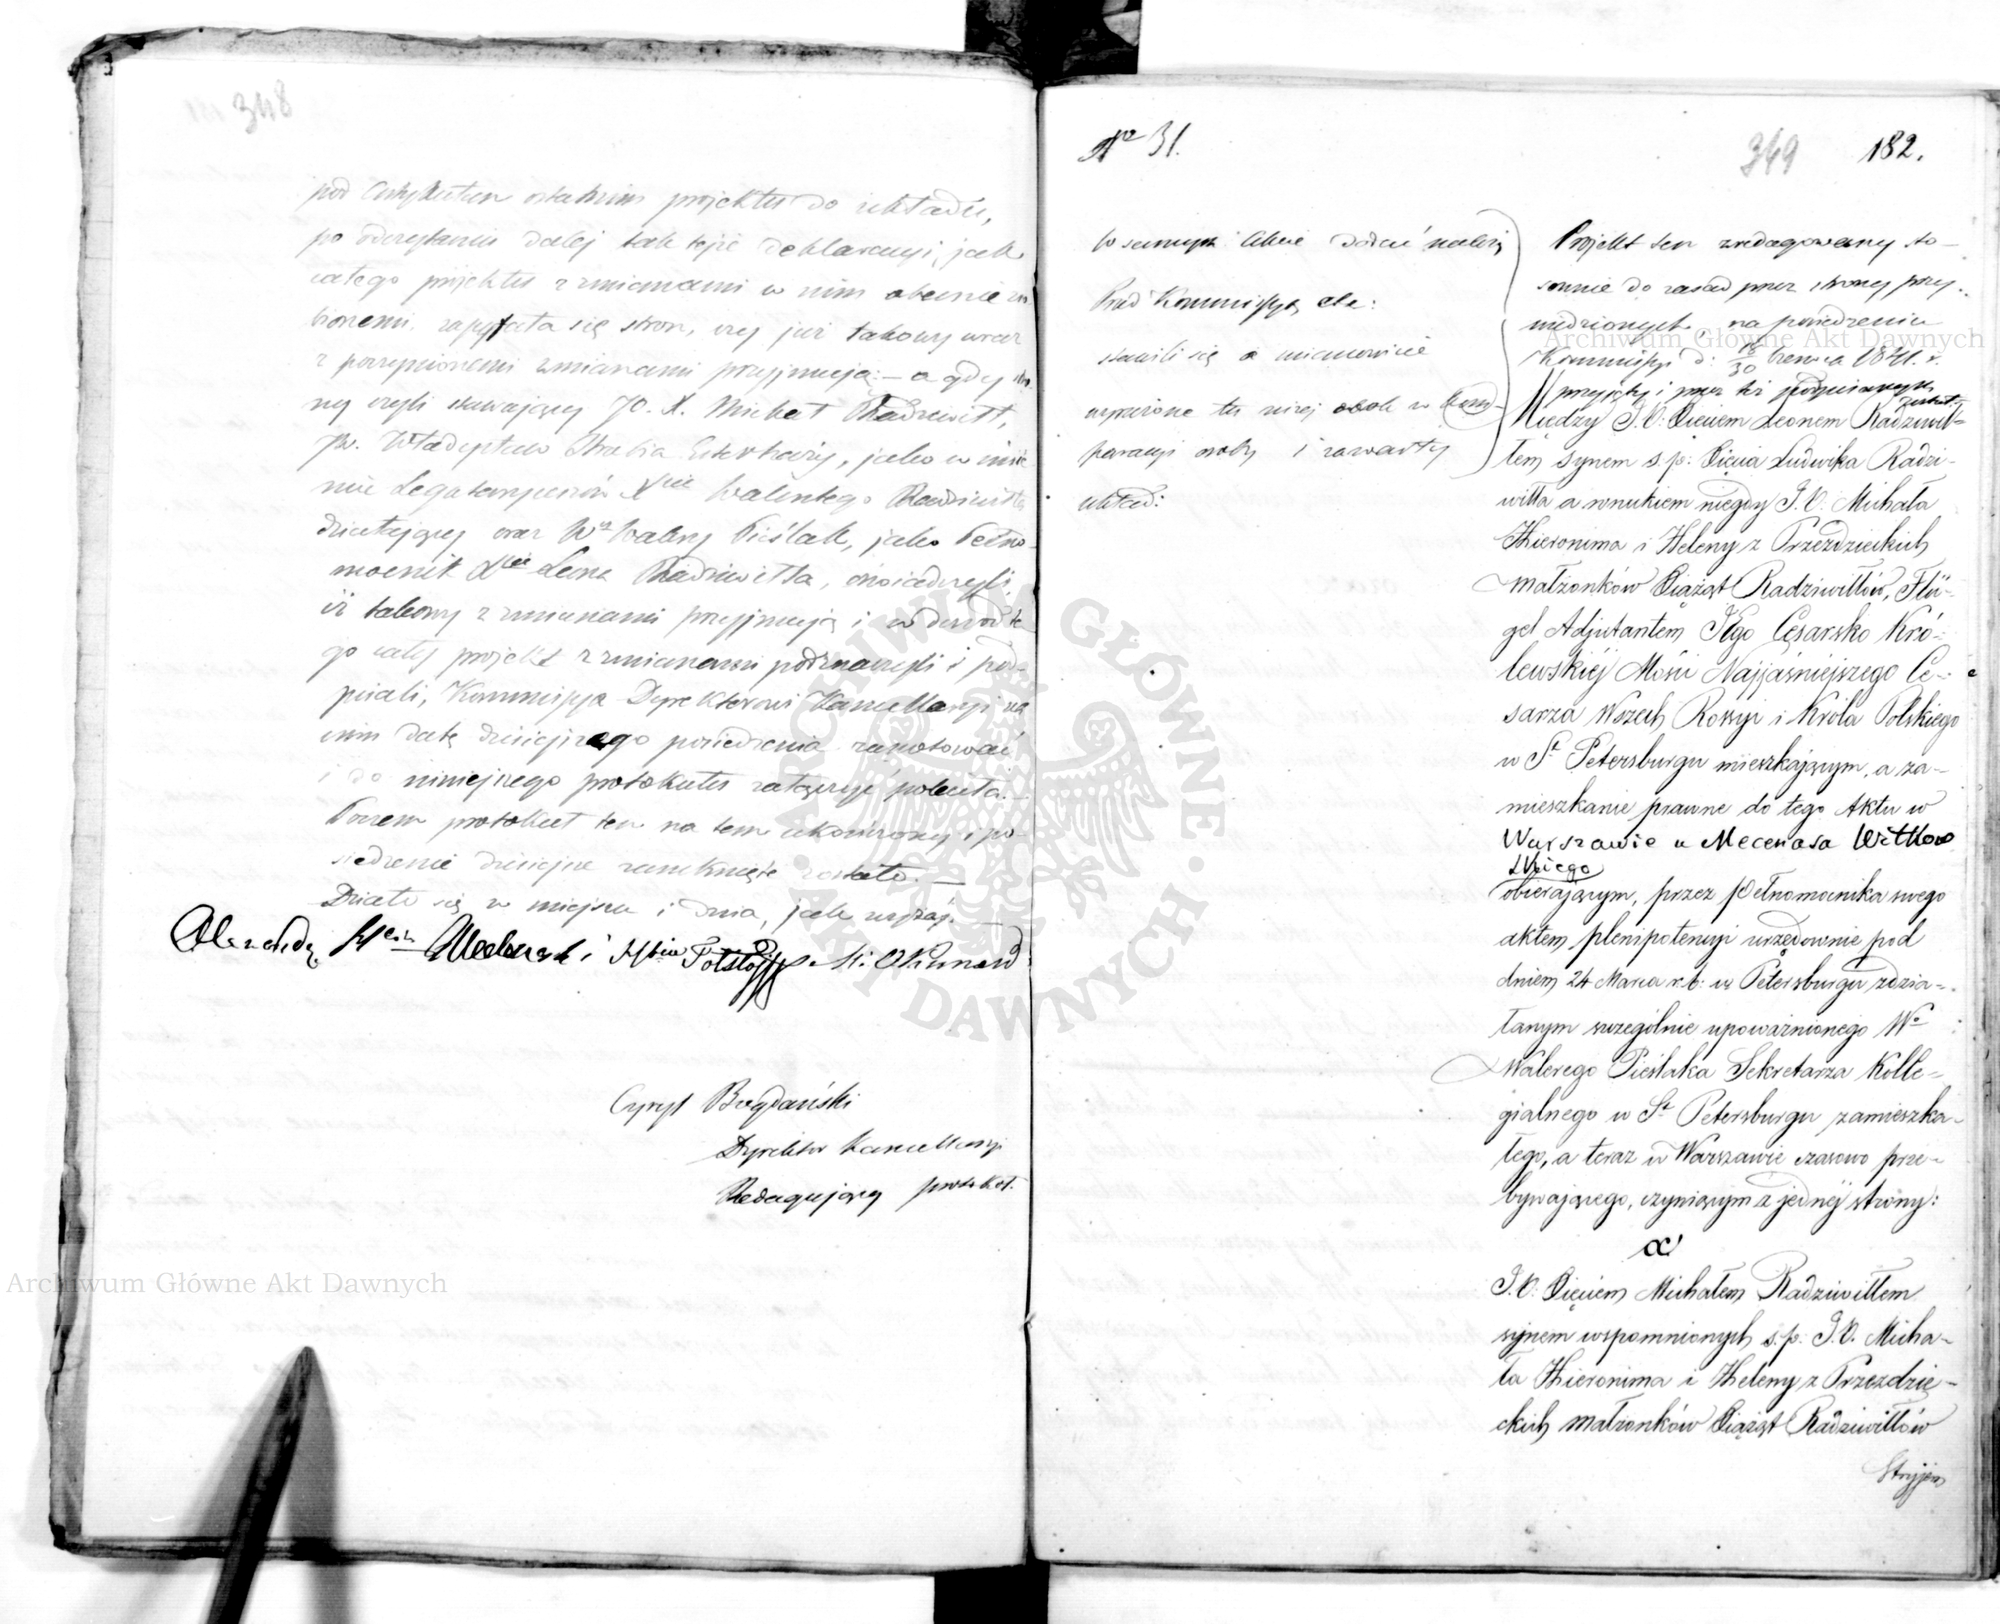 348
pod Artykułem ostatnim projektu do układu,
po odczytaniu dalej tak tejże deklaracyi, jak
całego projektu z zmianami w nim obecnie zro-
bionemi, zapytała się stron, czy już takowy wraz
z poczynionemi zmianami przyjmują: — a gdy stro-
ny czyli stawający JO. X. Michał Radziwiłł,
JW. Władysław Hrabia, jako w imie-
niu Legataryuszów Xcia Walentego Radziwiłła
działający oraz Wny Walery Pieślak, jako Pełno-
mocnik Xcia Leona Radziwiłła, oświadczyli,
iż takowy z zmianami przyjmują i w dowód te-
go cały projekt z zmianami podznaczyli i pod-
pisali, Kommissya Dyrektorowi Kancellaryi na
nim datę dzisiejszego posiedzenia zanotować
i do niniejszego protokułu załączyć poleciła.—
Poczem protokuł ten na tem ukończony i po-
siedzenie dzisiejsze zamknięte zostało. —
Działo się w miejscu i dniu, jak wyżej.
Cyryl Bogdański
Dyrektor Kancellaryi
Redagujący protokół.
Nro 31.
349 182.
W samym Akcie dodać należy
Przed Kommissyą etc:
stawili się a mianowicie
wyrażone tu niżej obok w kom-
paracyi osoby i zawarty
układ:
Projekt ten zredagowany sto-
sownie do zasad przez strony przy-
na posiedzeniu
Kommissyi d: 18/30 Czerwca 1841. r.
przyjęty i przez też podpisanych został.
Między J. O: Xięciem Leonem Radziwił-
łem synem s. p: Xięcia Ludwika Radzi-
wiłła a wnukiem niegdy J. O. Michała
Hieronima i Heleny z Przezdzieckich
małżonków Xiążąt Radziwiłłów, Flü-
gel Adjutantem Jego Cesarsko Kró-
lewskiéj Mości Najjaśniejszego Ce-
sarza Wszech Rossyi i Króla Polskiego
w St Petersburgu mieszkającym, a za-
mieszkanie prawne do tego Aktu w
Warszawie u Mecenasa Witkow
skiego
obierającym, przez pełnomocnika swego
aktem plenipotencyi urzędownie pod
dniem 24 Marca r. b: w Petersburgu zdzia-
łanym szczególnie upoważnionego Wo
Walerego Pieślaka Sekretarza Kolle-
gialnego w St Petersburgu zamieszka-
łego, a teraz w Warszawie czasowo prze-
bywającego, czyniącym z jednéj strony:
a
J. O: Xięciem Michałem Radziwiłłem
synem wspomnionych s. p: J. O. Micha-
ła Hieronima i Heleny z Przezdzie-
ckich małżonków Xiążąt Radziwiłłów
Stryjem
Archiwum Główne Akt Dawnych
Archiwum Główne Akt Dawnych
ARCHIWUM GŁÓWNE AKT DAWNYCH